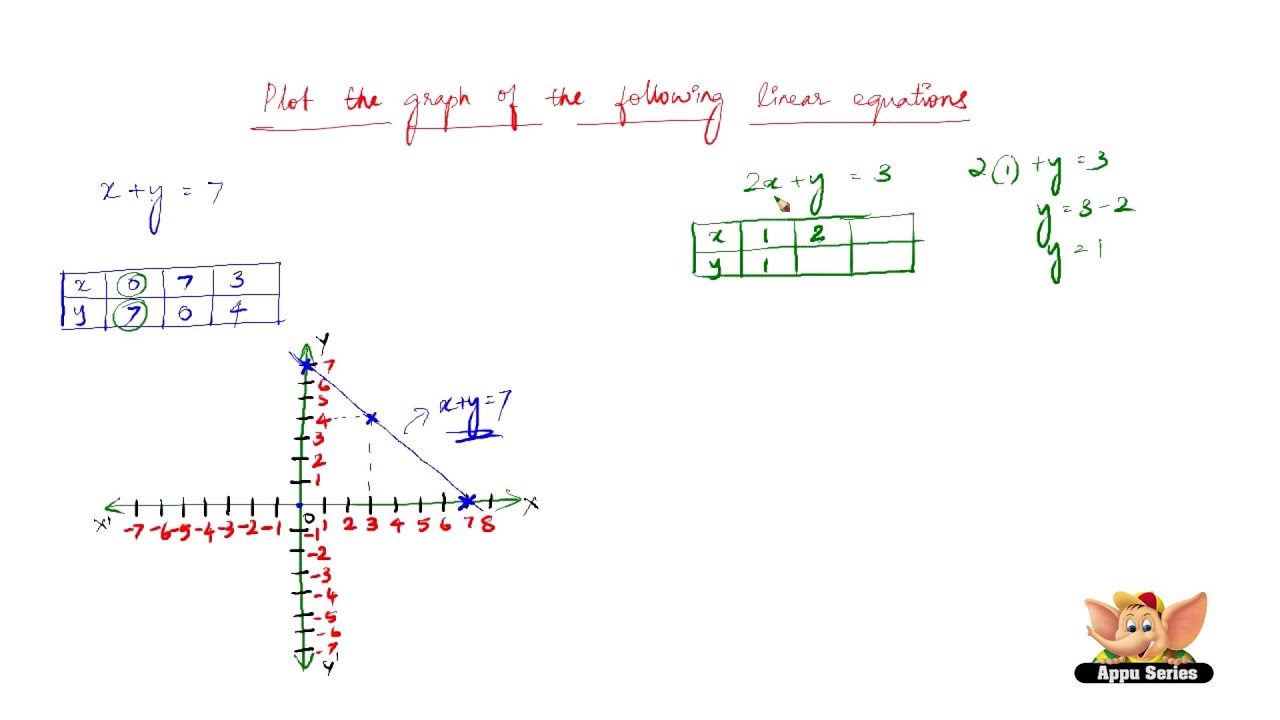 Plot the graph of the following linear equations
x + y = 7
x 0 7 3
y 7 0 4
2x + y = 3
x 1 2
y 1
2(1) + y = 3
y = 3 - 2
y = 1
Y
7
6
5
4
3
2
1
x+y=7
X' -7 -6 -5 -4 -3 -2 -1 0 1 2 3 4 5 6 7 8 X
-1
-2
-3
-4
-5
-6
-7
Y'
Appu Series